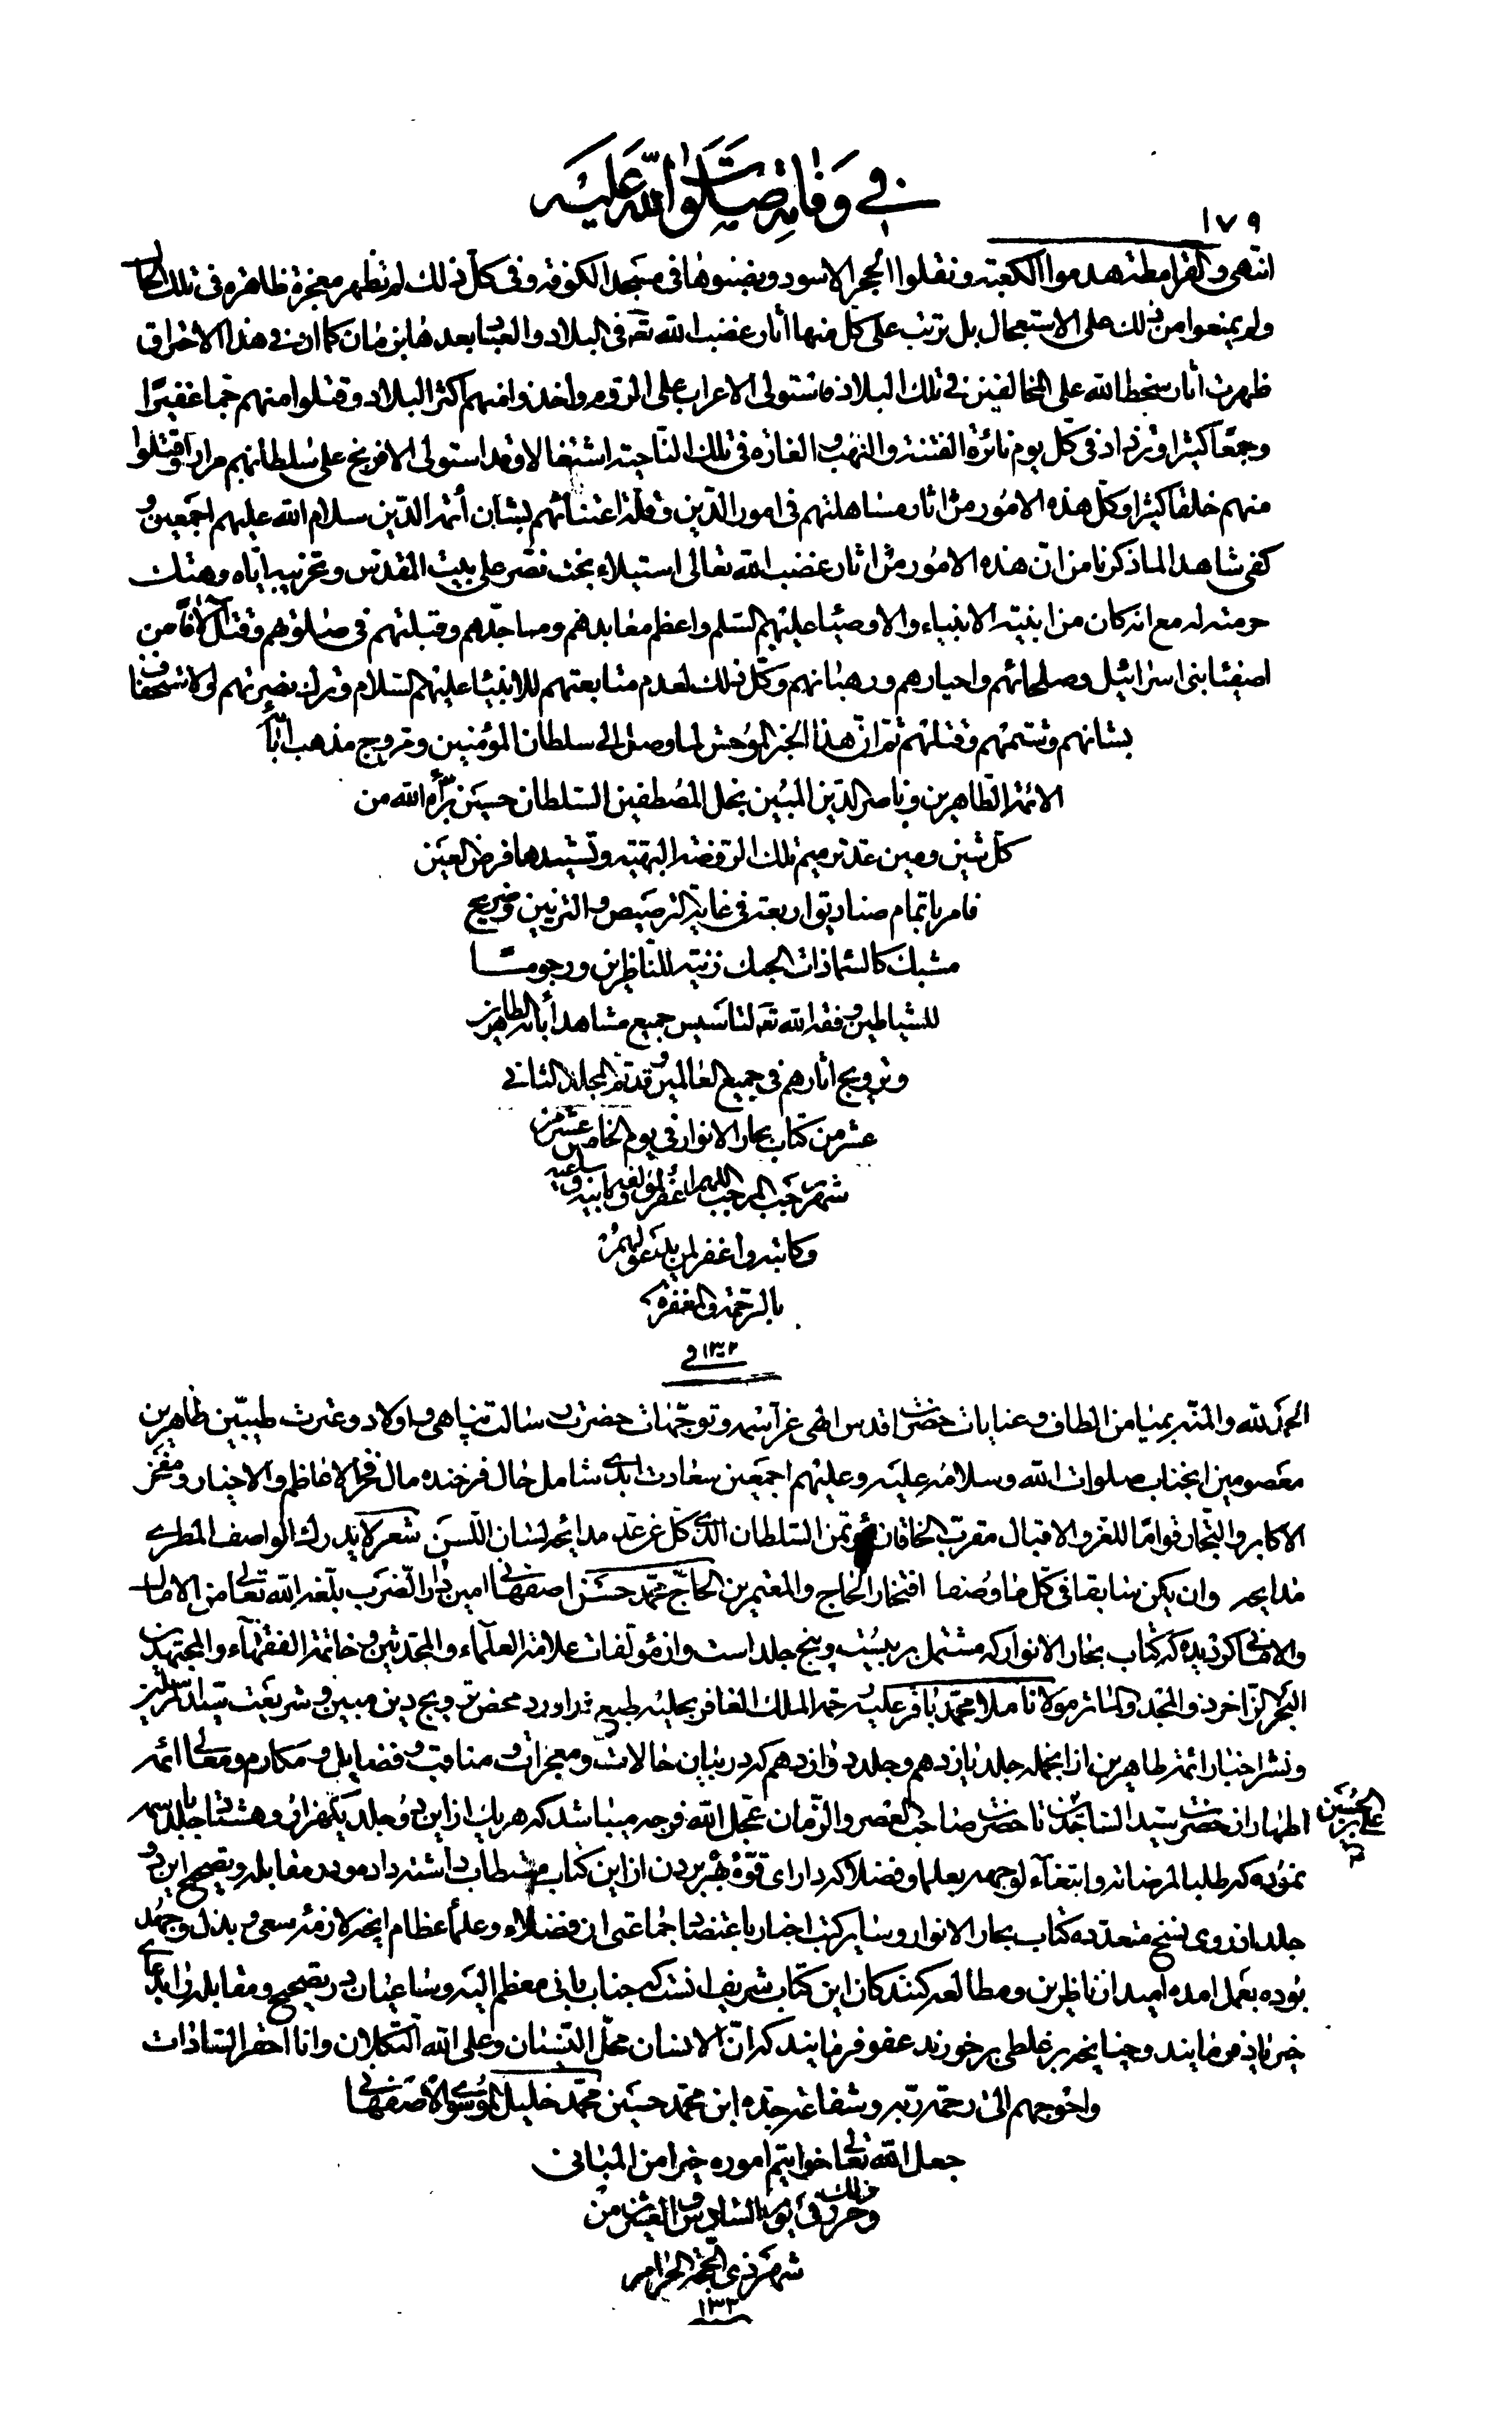 في وفاته صلوات الله عليه
١٧٩
انتهى والقرامطة هدموا الكعبة ونقلوا الحجر الاسود ونصبوها في مسجد الكوفة وفي كل ذلك لم تظهر معجزة ظاهرة في تلك الحال
ولم يمنعوا من ذلك على الاستعجال بل ترتب على كل منها اثار غضب الله تعه في البلاد والعباد بعدها بزمان كما ان في هذا الاحراق
ظهرت اثار سخط الله على المخالفين في تلك البلاد فاستولى الاعراب على الروم واخذوا منهم اكثر البلاد وقتلوا منهم جما غفيرا
وجمعا كثيرا وتزداد في كل يوم نائرة الفتنة والنهب والغارة في تلك الناحية اشتعالا وقد استولى الافرنج على سلطانهم مرارا وقتلوا
منهم خلقا كثيرا وكل هذه الامور من اثار مساهلتهم في امور الدين وقلة اعتنائهم بشان أئمة الدين سلام الله عليهم اجمعين و
كفى شاهدا لما ذكرنا من ان هذه الامور من اثار غضب الله تعالى استيلاء بخت نصر على بيت المقدس وتخريبه اياه وهتك
حرمته له مع انه كان من ابنية الانبياء والاوصيا عليهم السلم واعظم معابدهم ومساجدهم وقبلتهم في صلوتهم وقتل الافا من
اصفيا بنى اسرائيل وصلحائهم واحبارهم ورهبانهم وكل ذلك لعدم متابعتهم للانبيا عليهم السلام وترك نصرتهم والاستخفاف
بشانهم وشتمهم وقتلهم ثم ان هذا الخبر الموحش لما وصل الى سلطان المؤمنين ومروج مذهب ابائه
الائمة الطاهرين وناصر الدين المبين نجل المصطفين السلطان حسين برأه الله من
كل شين ومين عد ترميم تلك الروضة البهية وتشييدها فرض العين
فامر باتمام صناديق اربعة في غاية الترصيص والتزيين وضريح
مشبك كالسماذات الحبك زينة للناظرين ورجوما
للشياطين وفقه الله تعه لتاسيس جميع مشاهد ابائه الطاهرين
وترويج اثارهم في جميع العالمين وقد تم المجلد الثاني
عشر من كتاب بحار الانوار في يوم الخامس عشر من
شهر رجب المرجب اللهم اغفر لمؤلفه وبانيه وساعيه
وكاتبه واغفر لمن يدعو لهم
بالرحمة والمغفرة
الحمد لله والمنة بميامن الطاف وعنايات حضرت اقدس الهى عز اسمه وتوجهات حضرت رسالت پناهى واولاد وعترت طيبين طاهرين
معصومين انجناب صلوات الله وسلامه عليه وعليهم اجمعين سعادت ابدى شامل حال فرخنده مال فخر الاعاظم والاخيار ومفخر
الاكابر والتجار قواما للعز والاقبال مقرب الخاقان مؤتمن السلطان الذى كل عن عد مدائحه لسان اللسن شعر لا يدرك الواصف المطرى
مدايحه وان يكن سابقا في كل ما وصفا افتخار الحاج والمعتمرين الحاج محمد حسن اصفهانى امين دار الضرب بلغه الله تعالى من الامال
والامانى كرديده كه كتاب بحار الانوار كه مشتمل بر بيست وپنج جلد است واز مؤلفات علامة العلماء والمحدثين وخاتمة الفقهاء والمجتهدين
البحر الزاخر ذو المجد والماثر مولانا ملا محمد باقر عليه رحمة الملك الغافر بحليه طبع دراورد محض ترويج دين مبين وشريعت سيد المرسلين
ونشر اخبار ائمه طاهرين از انجمله جلد يازدهم وجلد دوازدهم كه در بيان حالات ومعجزات ومناقب وفضايل ومكارم ومعالى ائمه
اطهار از حضرت سيد الساجدين تا حضرت صاحب العصر والزمان عجل الله فرجه ميباشد كه هريك از اين دو جلد يكهزار وهشتاد جلد باسمه
على بن الحسين
نموده كه طلبا لمرضاته وابتغاء لوجهه بعلما وفضلا كه داراى قوه بهره بردن از اين كتاب مستطاب داشته داد موده مقابله وتصحيح اين دو
جلد از روى نسخ متعدده كتاب بحار الانوار وساير كتب اخبار باعتضاد جماعتى از فضلاء وعلماء عظام انچه لازمه سعى وبذل وجهد
بوده بعمل امده اميد از ناظرين ومطالعه كنندكان اين كتاب شريف انست كه جناب بانى معظم اليه وساعيان در تصحيح ومقابله را بدعاى
خير ياد فرمايند وچنانچه بر غلطى برخورند عفو فرمايند كه ان الانسان محل النسيان وعلى الله التكلان وانا احقر السادات
واحوجهم الى رحمة ربه وشفاعة جده ابن محمد حسين محمد خليل الموسوى الاصفهانى
جعل الله تعالى خواتيم اموره خيرا من المبانى
وحرر ذلك في يوم السادس والعشرين من
شهر ذى الحجة الحرام